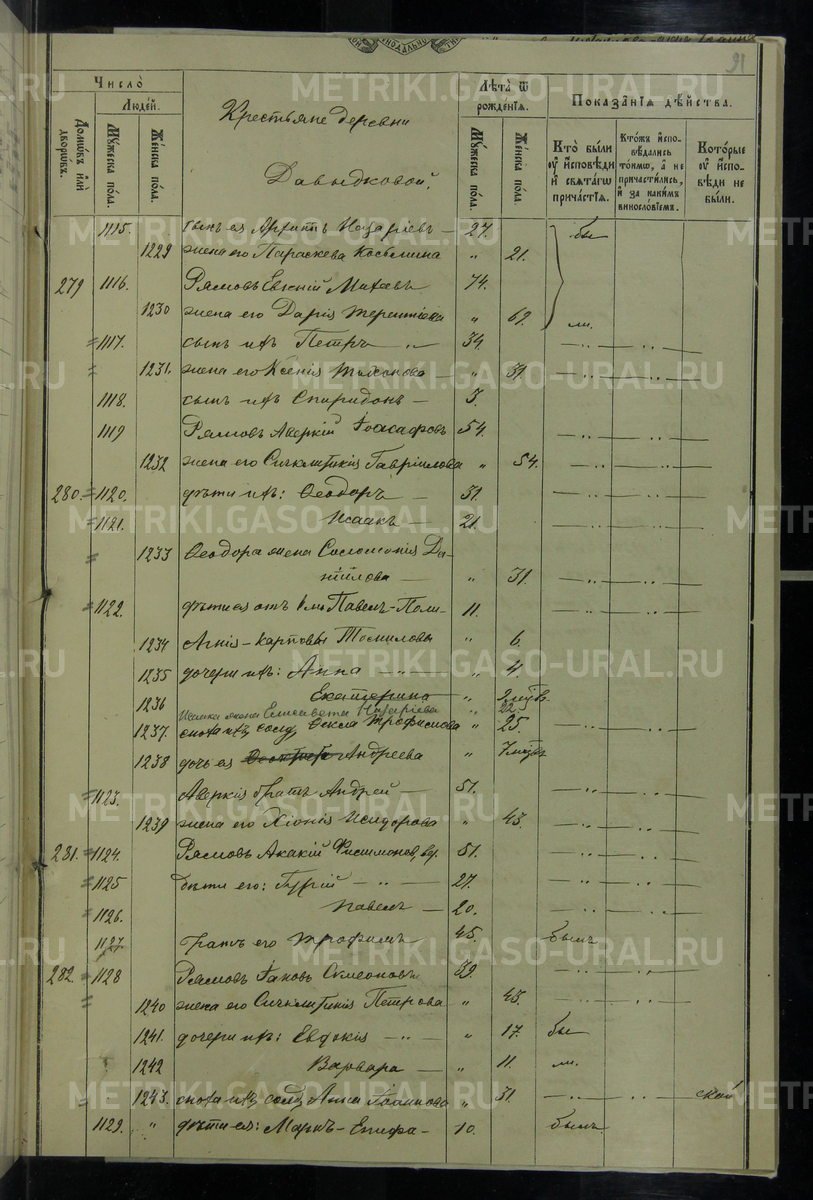 91
Число̀
Люде́й.
Домѡ́въ и҆лѝ дворѡ́въ.
Мꙋ́жеска по́ла.
Же́нска по́ла.
Крестьяне деревни
Давыдковой.
Лѣ́та ѿ рожде́нїѧ.
Мꙋ́жеска по́ла.
Же́нска по́ла.
Показа̑нїѧ дѣ́йства.
Кто̀ бы́ли ᲂу҆ и҆́сповѣди и҆ свѧта́гѡ прича́стїѧ.
Кто́жъ и҆спо-вѣ́дались то́кмѡ, а҆ не причасти́лись, и҆ за каки́мъ виносло́вїемъ.
Кото́рые ᲂу҆ и҆́спо-вѣди не бы́ли.
1115. сынъ ея Архипъ Назаріевъ — 27. бы
1229 жена его Параскева Косьмина „ 21.
279 1116. Рямовъ Евсній Михеевъ 74.
1230 жена его Дарія Терентіева „ 69. ли.
1117. сынъ ихъ Петръ „ 34. — „ — „ —
1231. жена его Ксенія Тихонова — „ 31. — „ — „ —
1118. сынъ ихъ Спиридонъ — 3.
1119 Рямовъ Аверкій Іоасафовъ 54. — „ — „ —
1232 жена его Синклитикія Гавріилова „ 54. — „ — „ —
280. 1120. дѣти ихъ: Ѳеодоръ — 31.
1121. Исаакъ — 21.
1233 Ѳеодора жена Соломонія Да-
ніилова — „ 31. — „ — „ —
1122. дѣти ея отъ 1 мо Павелъ-Поли- 11. — „ — „ —
1234 Агнія-Карповы Томиловы „ 6.
1235 дочери ихъ: Анна — „ — „ 4.
1236 Екатерина „ 2 мѣс.
Исаака жена Елисавета Назаріева „ 22
1237. сноха ихъ солд. Ѳекла Трофимова „ 25. — „ — „ —
1238 дочь ея Андреева „ 7 мѣс.
1123. Аверкія братъ Андрей — 51. — „ — „ —
1239 жена его Хіонія Исидорова „ 43. — „ — „ —
281. 1124. Рямовъ Акакій Филимоновъ, вд. 51. — „ — „ —
1125 дѣти его: Гурій — „ — 27. — „ — „ —
1126. Павелъ — 20. — „ — „ —
1127. братъ его Трофимъ 45. былъ
282. 1128 Рямовъ Іаковъ Симеоновъ 39. — „ — „ —
1240 жена его Синклитикія Петрова „ 43. — „ — „ —
1241. дочери ихъ: Евдокія — „ — „ 17. бы
1242 Варвара — „ 11. ли.
1243. сноха ихъ солд. Анна Іоаннова „ 31. — „ — „ —
1129. „ дѣти ея: Маркъ-Епифа- 10. былъ
METRIKI.GASO-URAL.RU